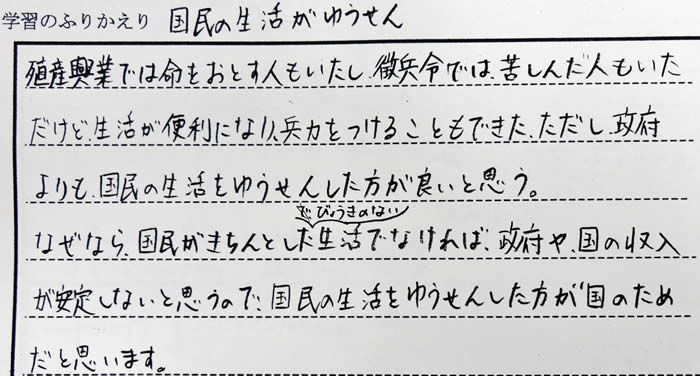 学習のふりかえり 国民の生活がゆうせん
殖産興業では命をおとす人もいたし、徴兵令では、苦しんだ人もいた
だけど、生活が便利になり、兵力をつけることもできた、ただし、政府
よりも、国民の生活をゆうせんした方が良いと思う。
びょうきのない
なぜなら、国民がきちんとした生活でなければ、政府や、国の収入
が安定しないと思うので、国民の生活をゆうせんした方が国のため
だと思います。